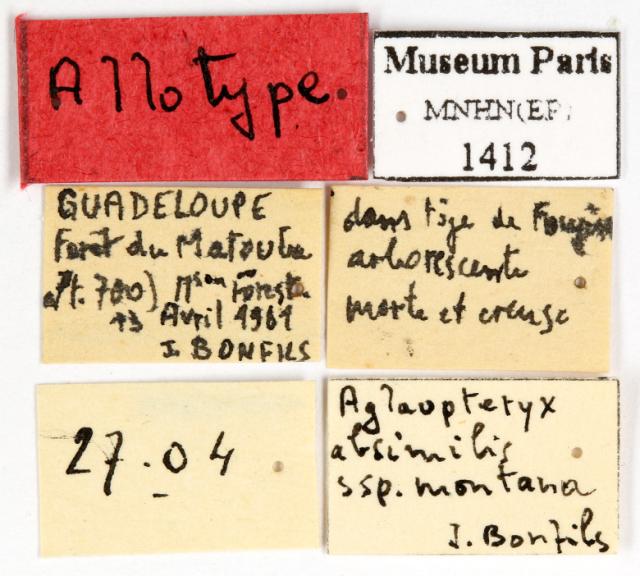 Allotype.
Museum Paris
MNHN(EP)
1412
GUADELOUPE
Forêt du Matouba
alt. 700) Mson Forestre
13 Avril 1961
J. BONFILS
dans tige de Fougère
arborescente
morte et creuse
27.04
Aglaopteryx
absimilis
ssp. montana
J. Bonfils